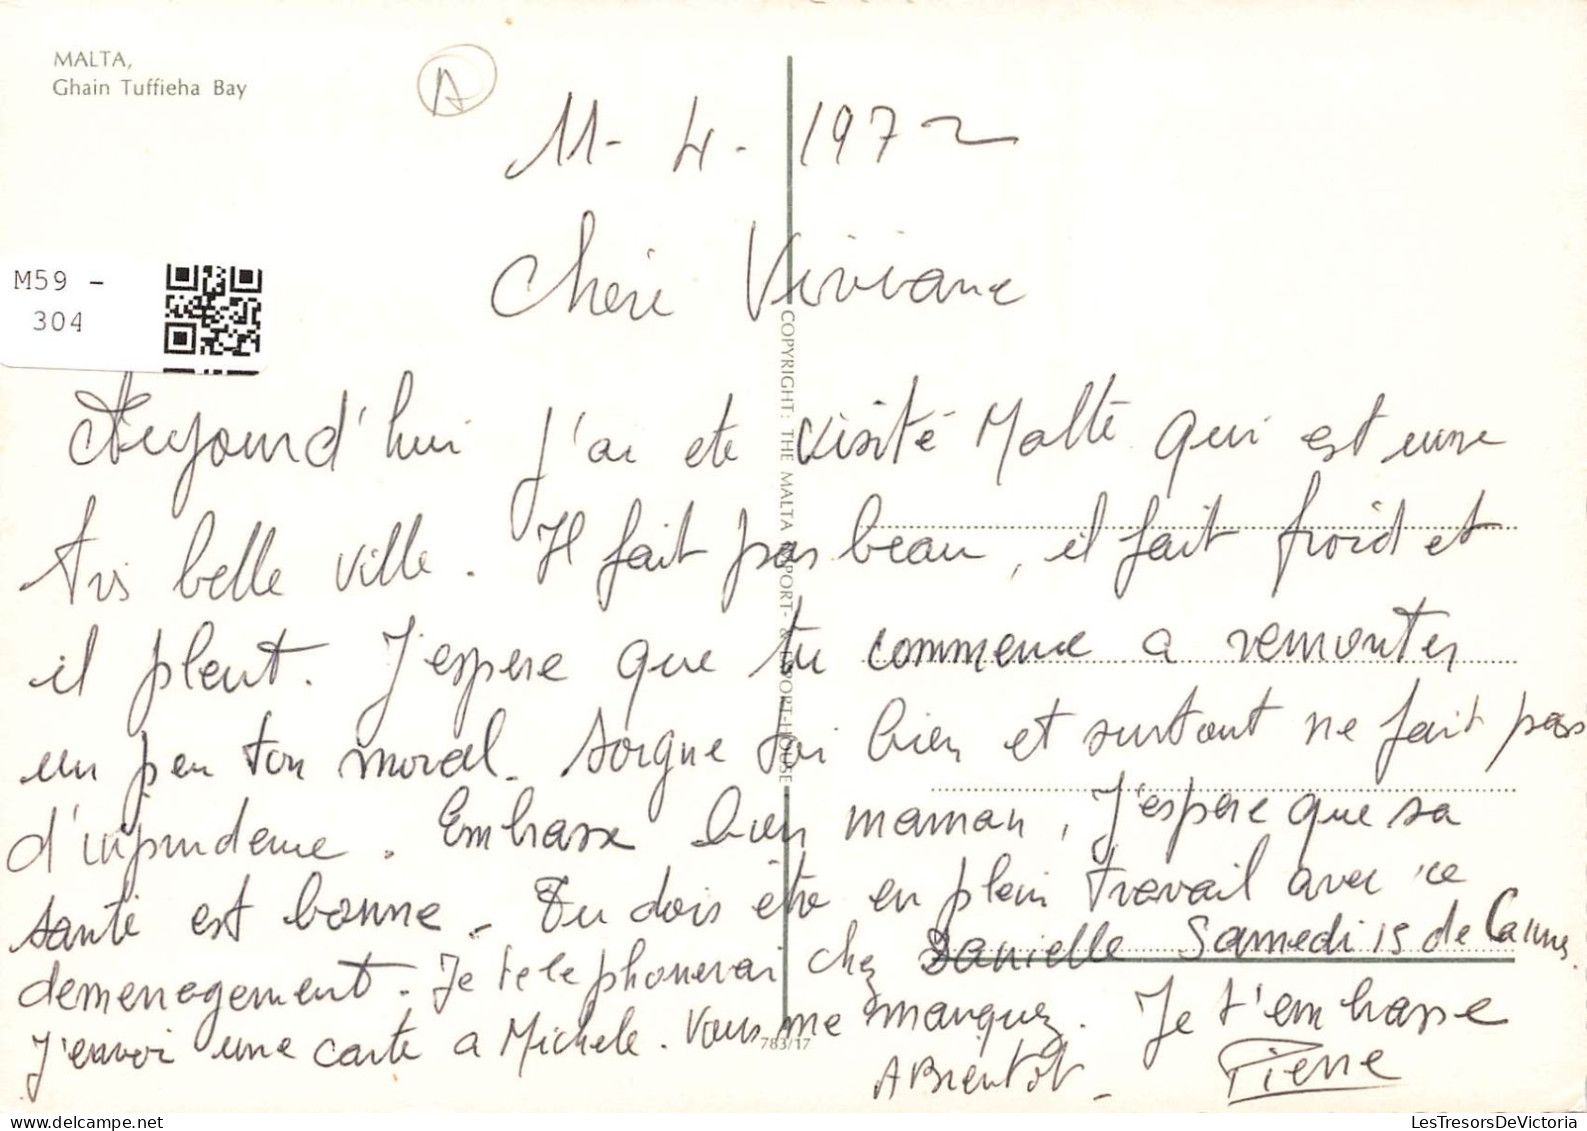 MALTA,
Ghain Tuffieha Bay
A
11-4-1972
M59 -
304
Chère Viviane
Aujourd'hui j'ai ete visité Malte qui est une
tres belle ville. Il fait pas beau, il fait froid et
il pleut. J'espere que tu commence a remonter
un peu ton moral. Soigne toi bien et surtout ne fait pas
d'inprudence. Embrasse bien maman, J'espere que sa
santé est bonne. Tu dois être en plein travail avec ce
demenagement. Je telephonerai chez Danielle Samedi 15 de Cannes.
J'envoi une carte a Michele. Vous me manquez. Je t'embrasse
A Bientot - Pierre
COPYRIGHT: THE MALTA IMPORT- & EXPORT-HOUSE
783/17
LesTresorsDeVictoria